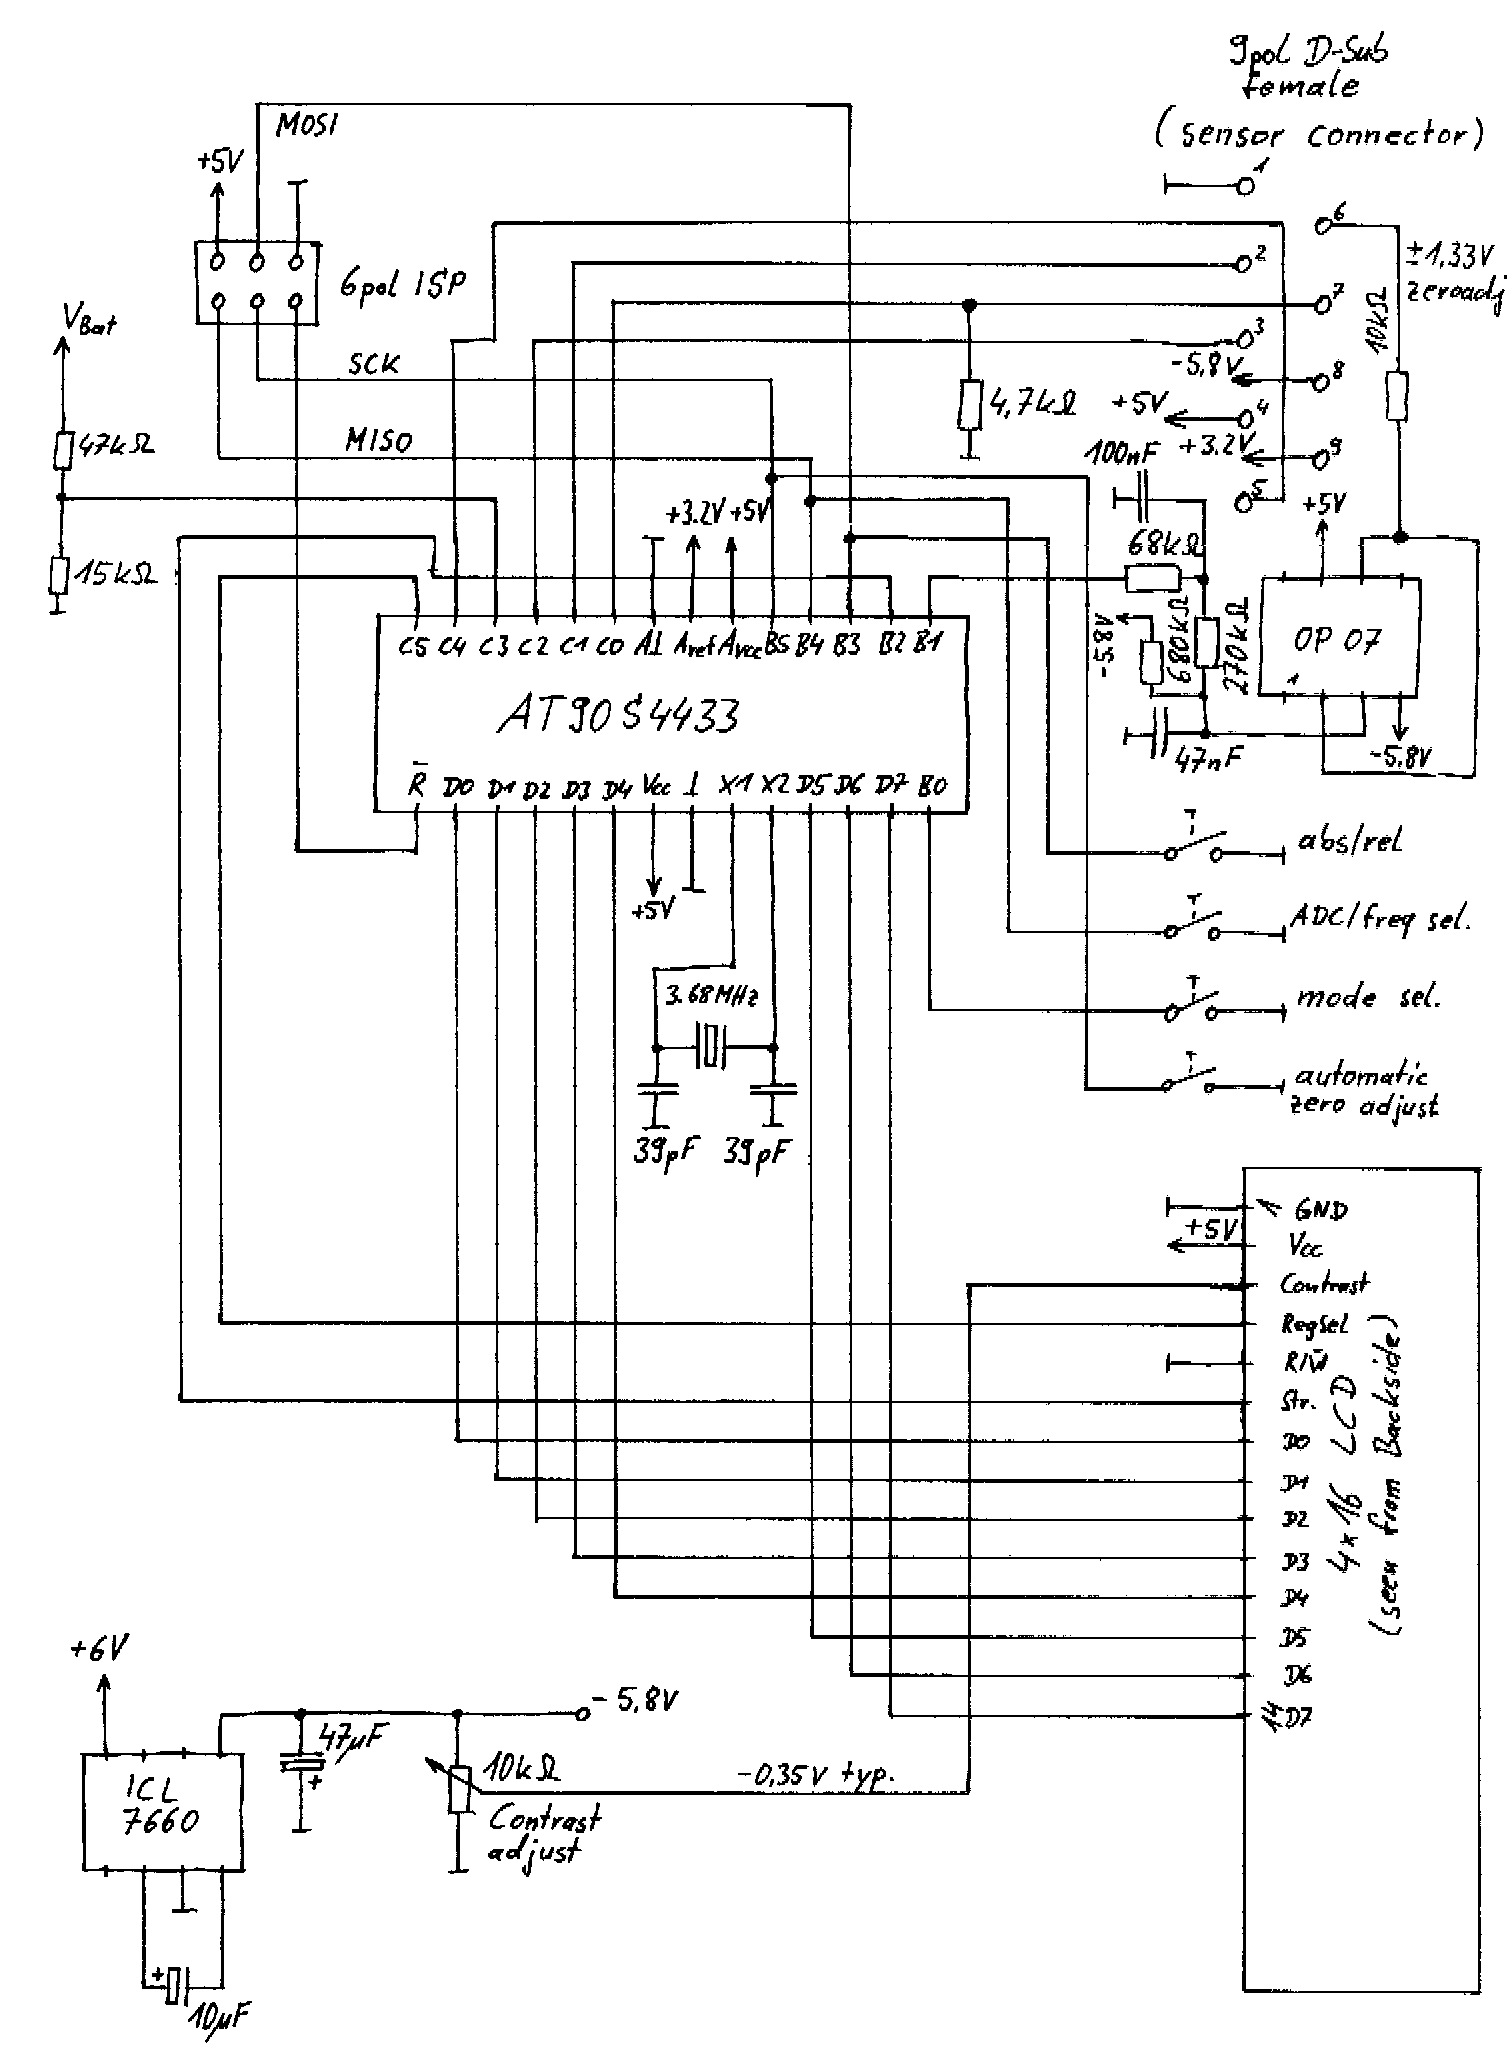 9pol D-Sub
female
(sensor connector)
MOSI
+5V
1
6
±1,33V
zeroadj
2
6pol ISP
7
10kΩ
VBat
3
-5,8V
8
SCK
4,7kΩ
+5V
4
47kΩ
MISO
100nF
+3.2V
9
5
+3.2V +5V
+5V
68kΩ
15kΩ
-5.8V
680kΩ
270kΩ
OP 07
1
C5 C4 C3 C2 C1 C0 A⊥ Aref Avcc B5 B4 B3 B2 B1
AT90S4433
47nF
-5.8V
R̅ D0 D1 D2 D3 D4 Vcc ⊥ X1 X2 D5 D6 D7 B0
abs/rel
+5V
ADC/freq sel.
3.68MHz
mode sel.
automatic
zero adjust
39pF 39pF
1 GND
+5V
Vcc
Contrast
RegSel
R/W̅
Str.
D0
D1
D2
D3
D4
D5
D6
14 D7
4x16 LCD
(seen from Backside)
+6V
-5,8V
47µF
+
10kΩ
-0,35V typ.
ICL
7660
Contrast
adjust
+
10µF